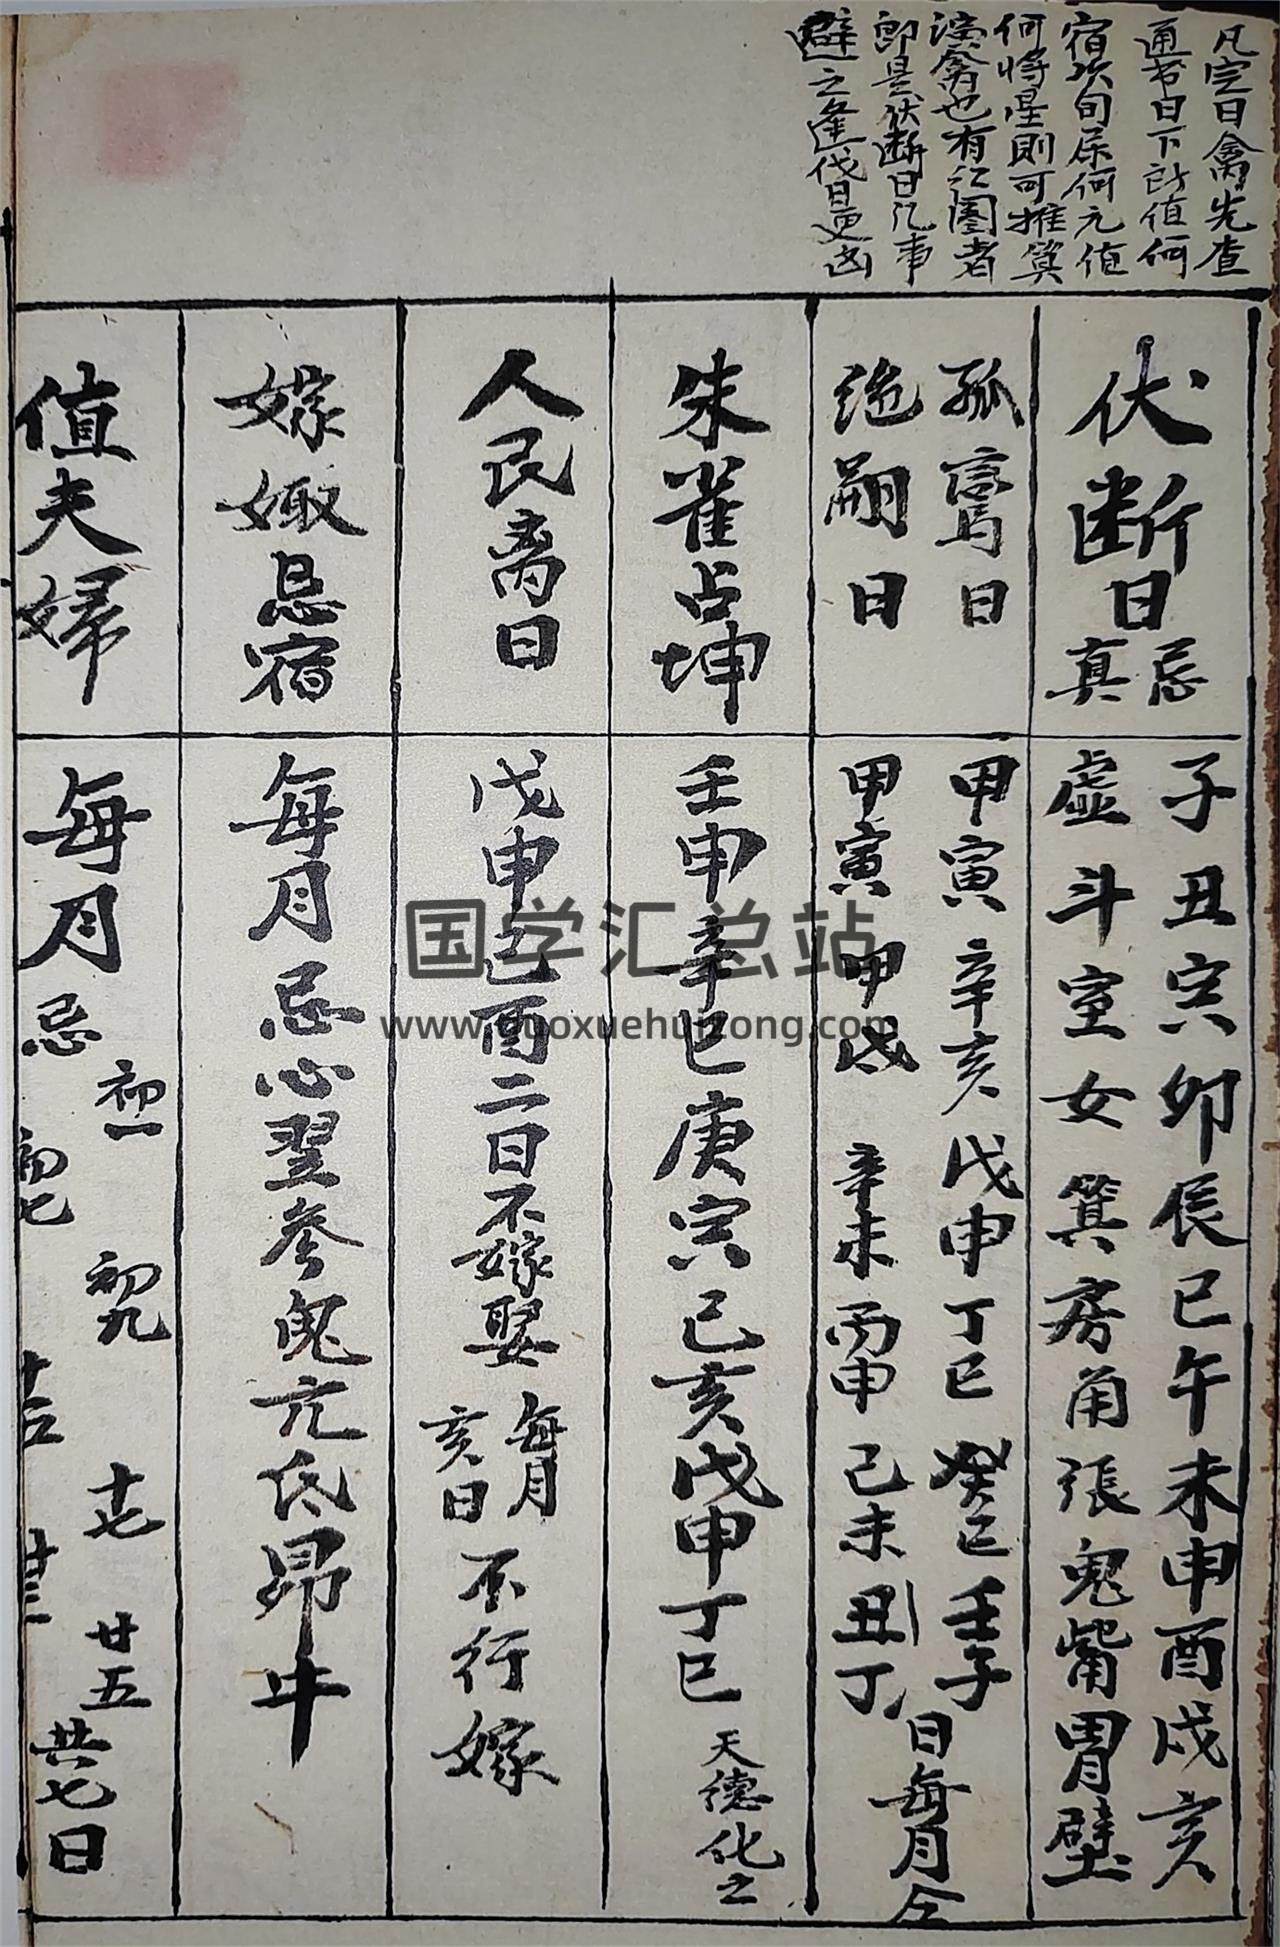 凡定日禽先查
通书日下所值何
宿次旬尿何元值
何将星則可推算
演禽也有红圈者
即是伏断日凡事
避之逢伐日更凶
伏断日
忌
真
子丑寅卯辰巳午未申酉戌亥
虚斗室女箕房角張鬼觜胃壁
孤鸾日
绝嗣日
甲寅 辛亥 戊申 丁巳 癸巳 壬子
甲寅 甲戌 辛未 丙申 己未 丑丁
日每月仝
朱雀占坤
壬申辛巳庚寅己亥戊申丁巳
天德化之
人民离日
戊申己酉二日不嫁娶
每月
亥日
不行嫁
嫁娵忌宿
每月忌心翌参鬼亢氐昴牛
值夫婦
每月忌
初一
初七
初九
十五
十七
廿五
共七日
国学汇总站
www.guoxuehuizong.com